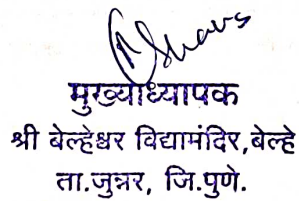 मुख्याध्यापक
श्री बेल्हेश्वर विद्यामंदिर,बेल्हे
ता.जुन्नर, जि.पुणे.